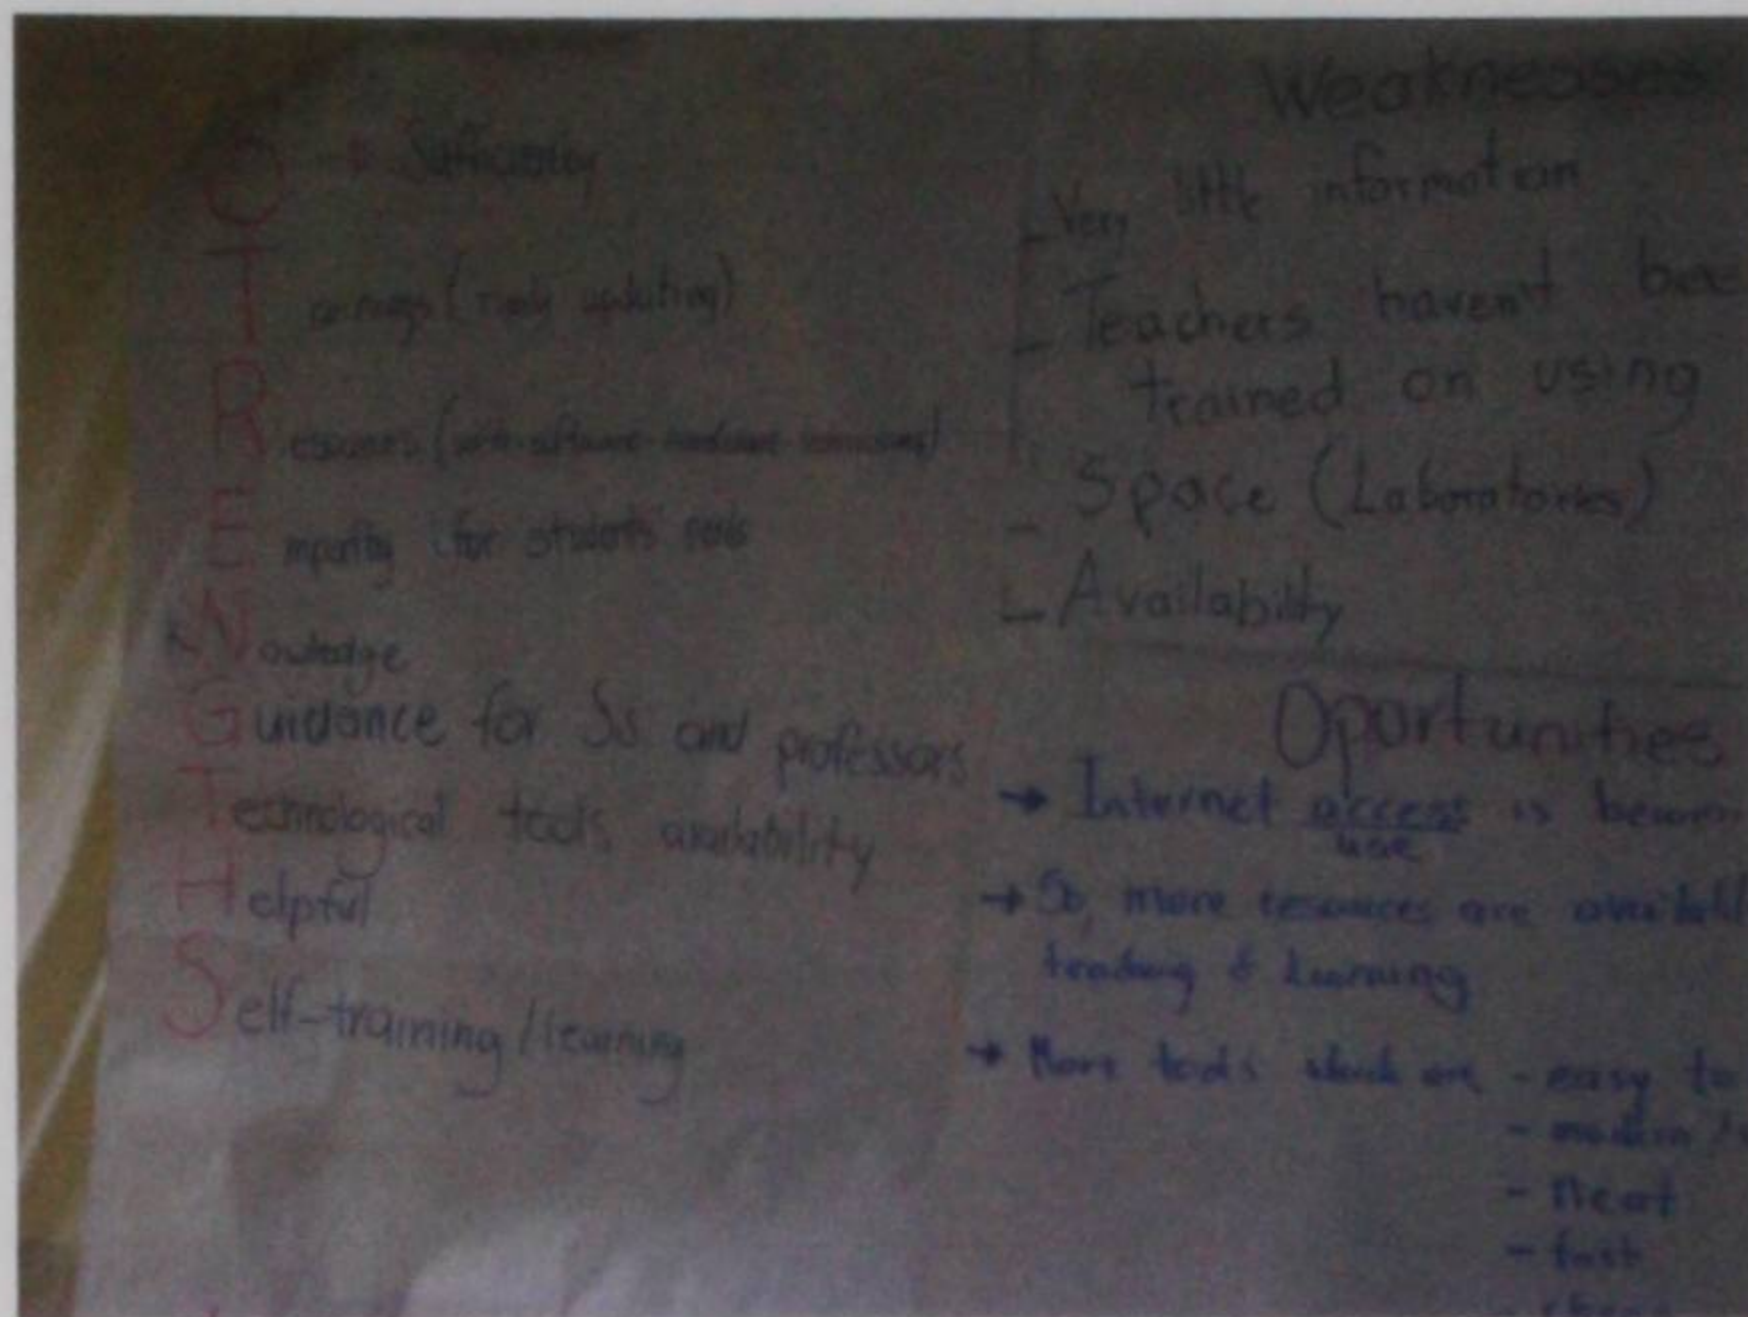 S
T
Resources (
E for students
kNowledge
Guidance for Ss and professors
Technological tools availability
Helpful
Self-training/learning
Weaknesses
- Very little information
- Teachers haven't bee
trained on using
- Space (Laboratories)
- Availability
Oportunities
→ Internet access is becom
use
→ So, more resources are availabl
teaching & Learning
→ More tools which are - easy to
- modern /
- Neat
- fast